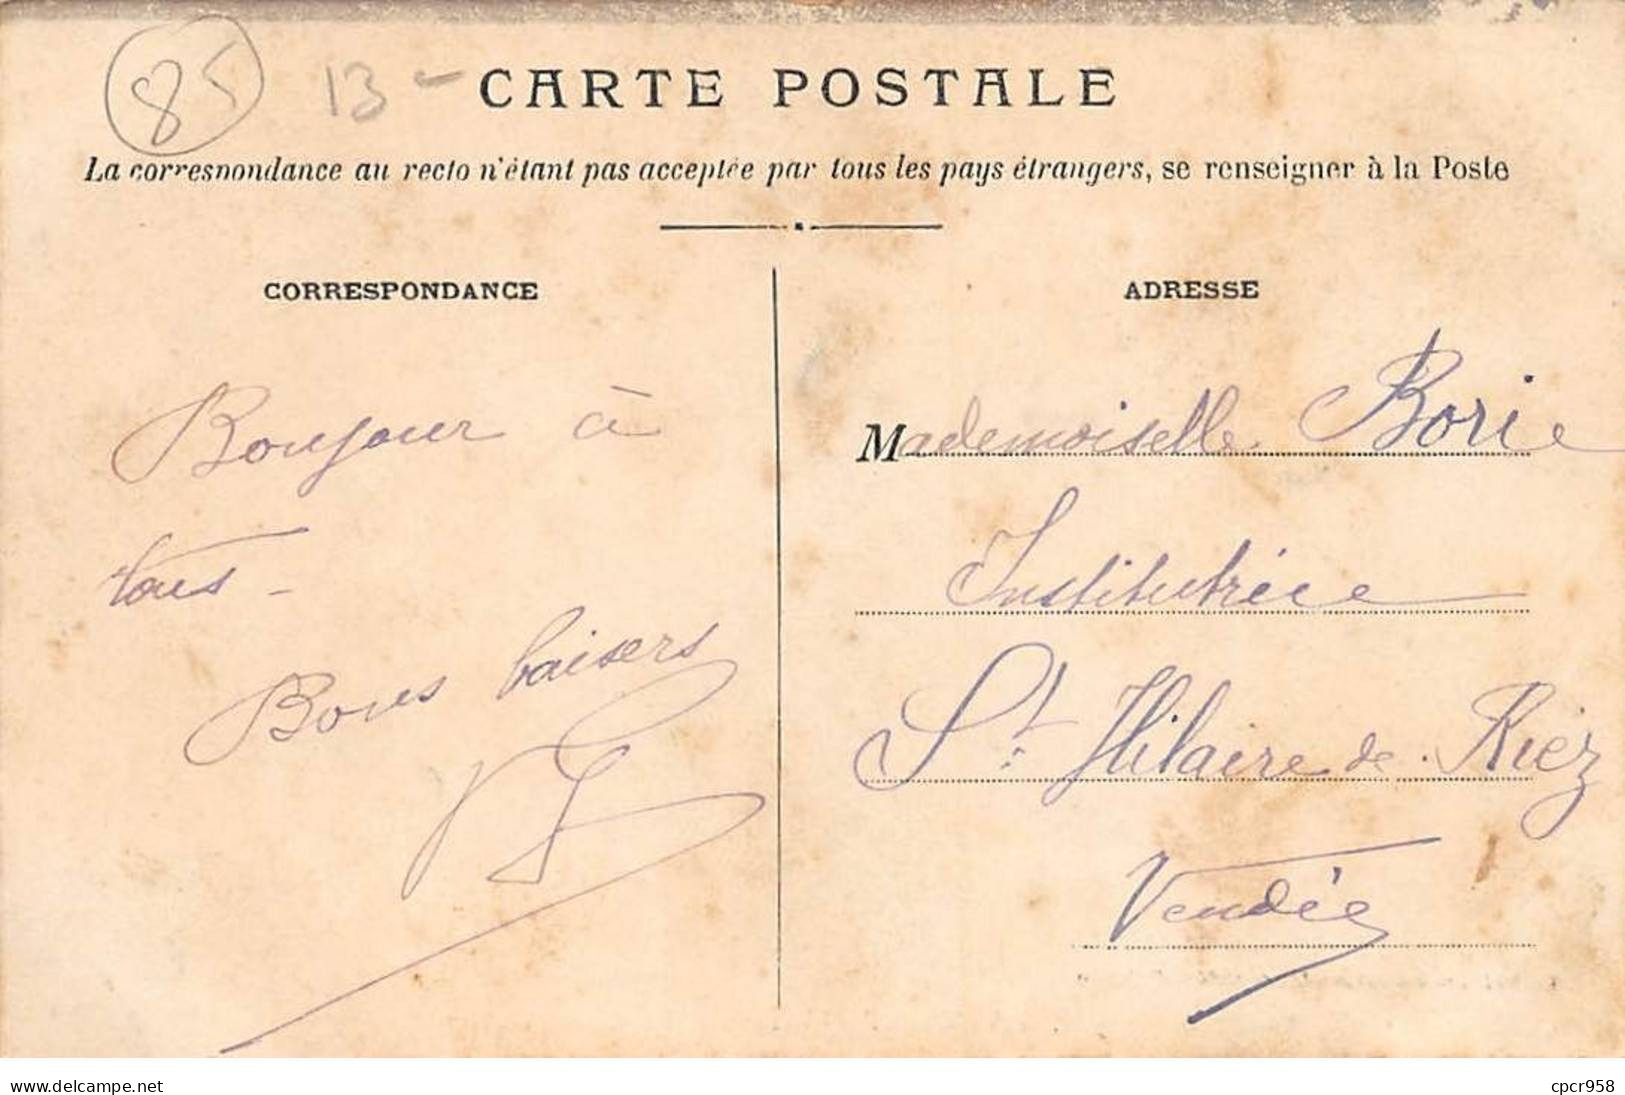 85 13 -
CARTE POSTALE
La correspondance au recto n'étant pas acceptée par tous les pays étrangers, se renseigner à la Poste
CORRESPONDANCE
Bonjour à
tous -
Bons baisers
ADRESSE
Mademoiselle Borie
Institutrice
St Hilaire de Riez
Vendée
www.delcampe.net
cpcr958